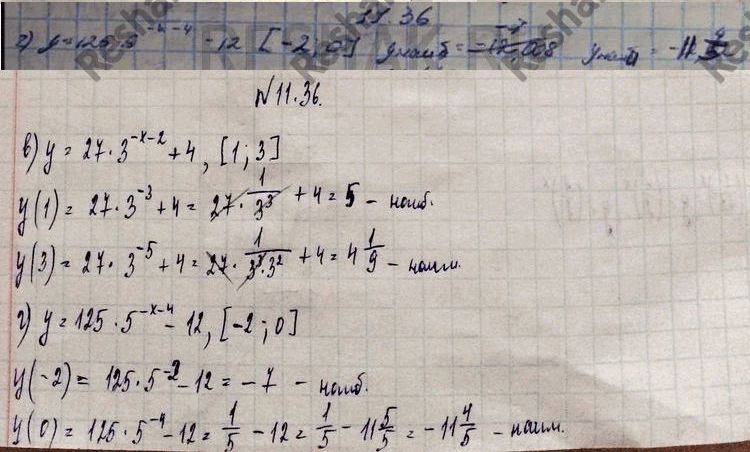 11.36
г) y = 125 · 5^{-x-4} - 12 [-2; 0] yнаиб = -7 yнаим = -11 4/5
№11.36.
в) y = 27 · 3^{-x-2} + 4, [1; 3]
y(1) = 27 · 3^{-3} + 4 = 27 · 1/3^3 + 4 = 5 - наиб.
y(3) = 27 · 3^{-5} + 4 = 27 · 1/(3^3 · 3^2) + 4 = 4 1/9 - наим.
г) y = 125 · 5^{-x-4} - 12, [-2; 0]
y(-2) = 125 · 5^{-2} - 12 = -7 - наиб.
y(0) = 125 · 5^{-4} - 12 = 1/5 - 12 = 1/5 - 11 5/5 = -11 4/5 - наим.